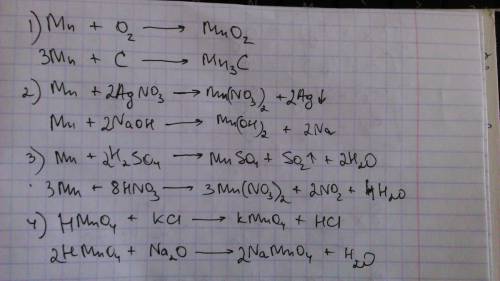 1) Mn + O₂ → MnO₂
3Mn + C → Mn₃C
2) Mn + 2AgNO₃ → Mn(NO₃)₂ + 2Ag↓
Mn + 2NaOH → Mn(OH)₂ + 2Na
3) Mn + 2H₂SO₄ → MnSO₄ + SO₂↑ + 2H₂O
3Mn + 8HNO₃ → 3Mn(NO₃)₂ + 2NO₂ + 4H₂O
4) HMnO₄ + KCl → KMnO₄ + HCl
2HMnO₄ + Na₂O → 2NaMnO₄ + H₂O